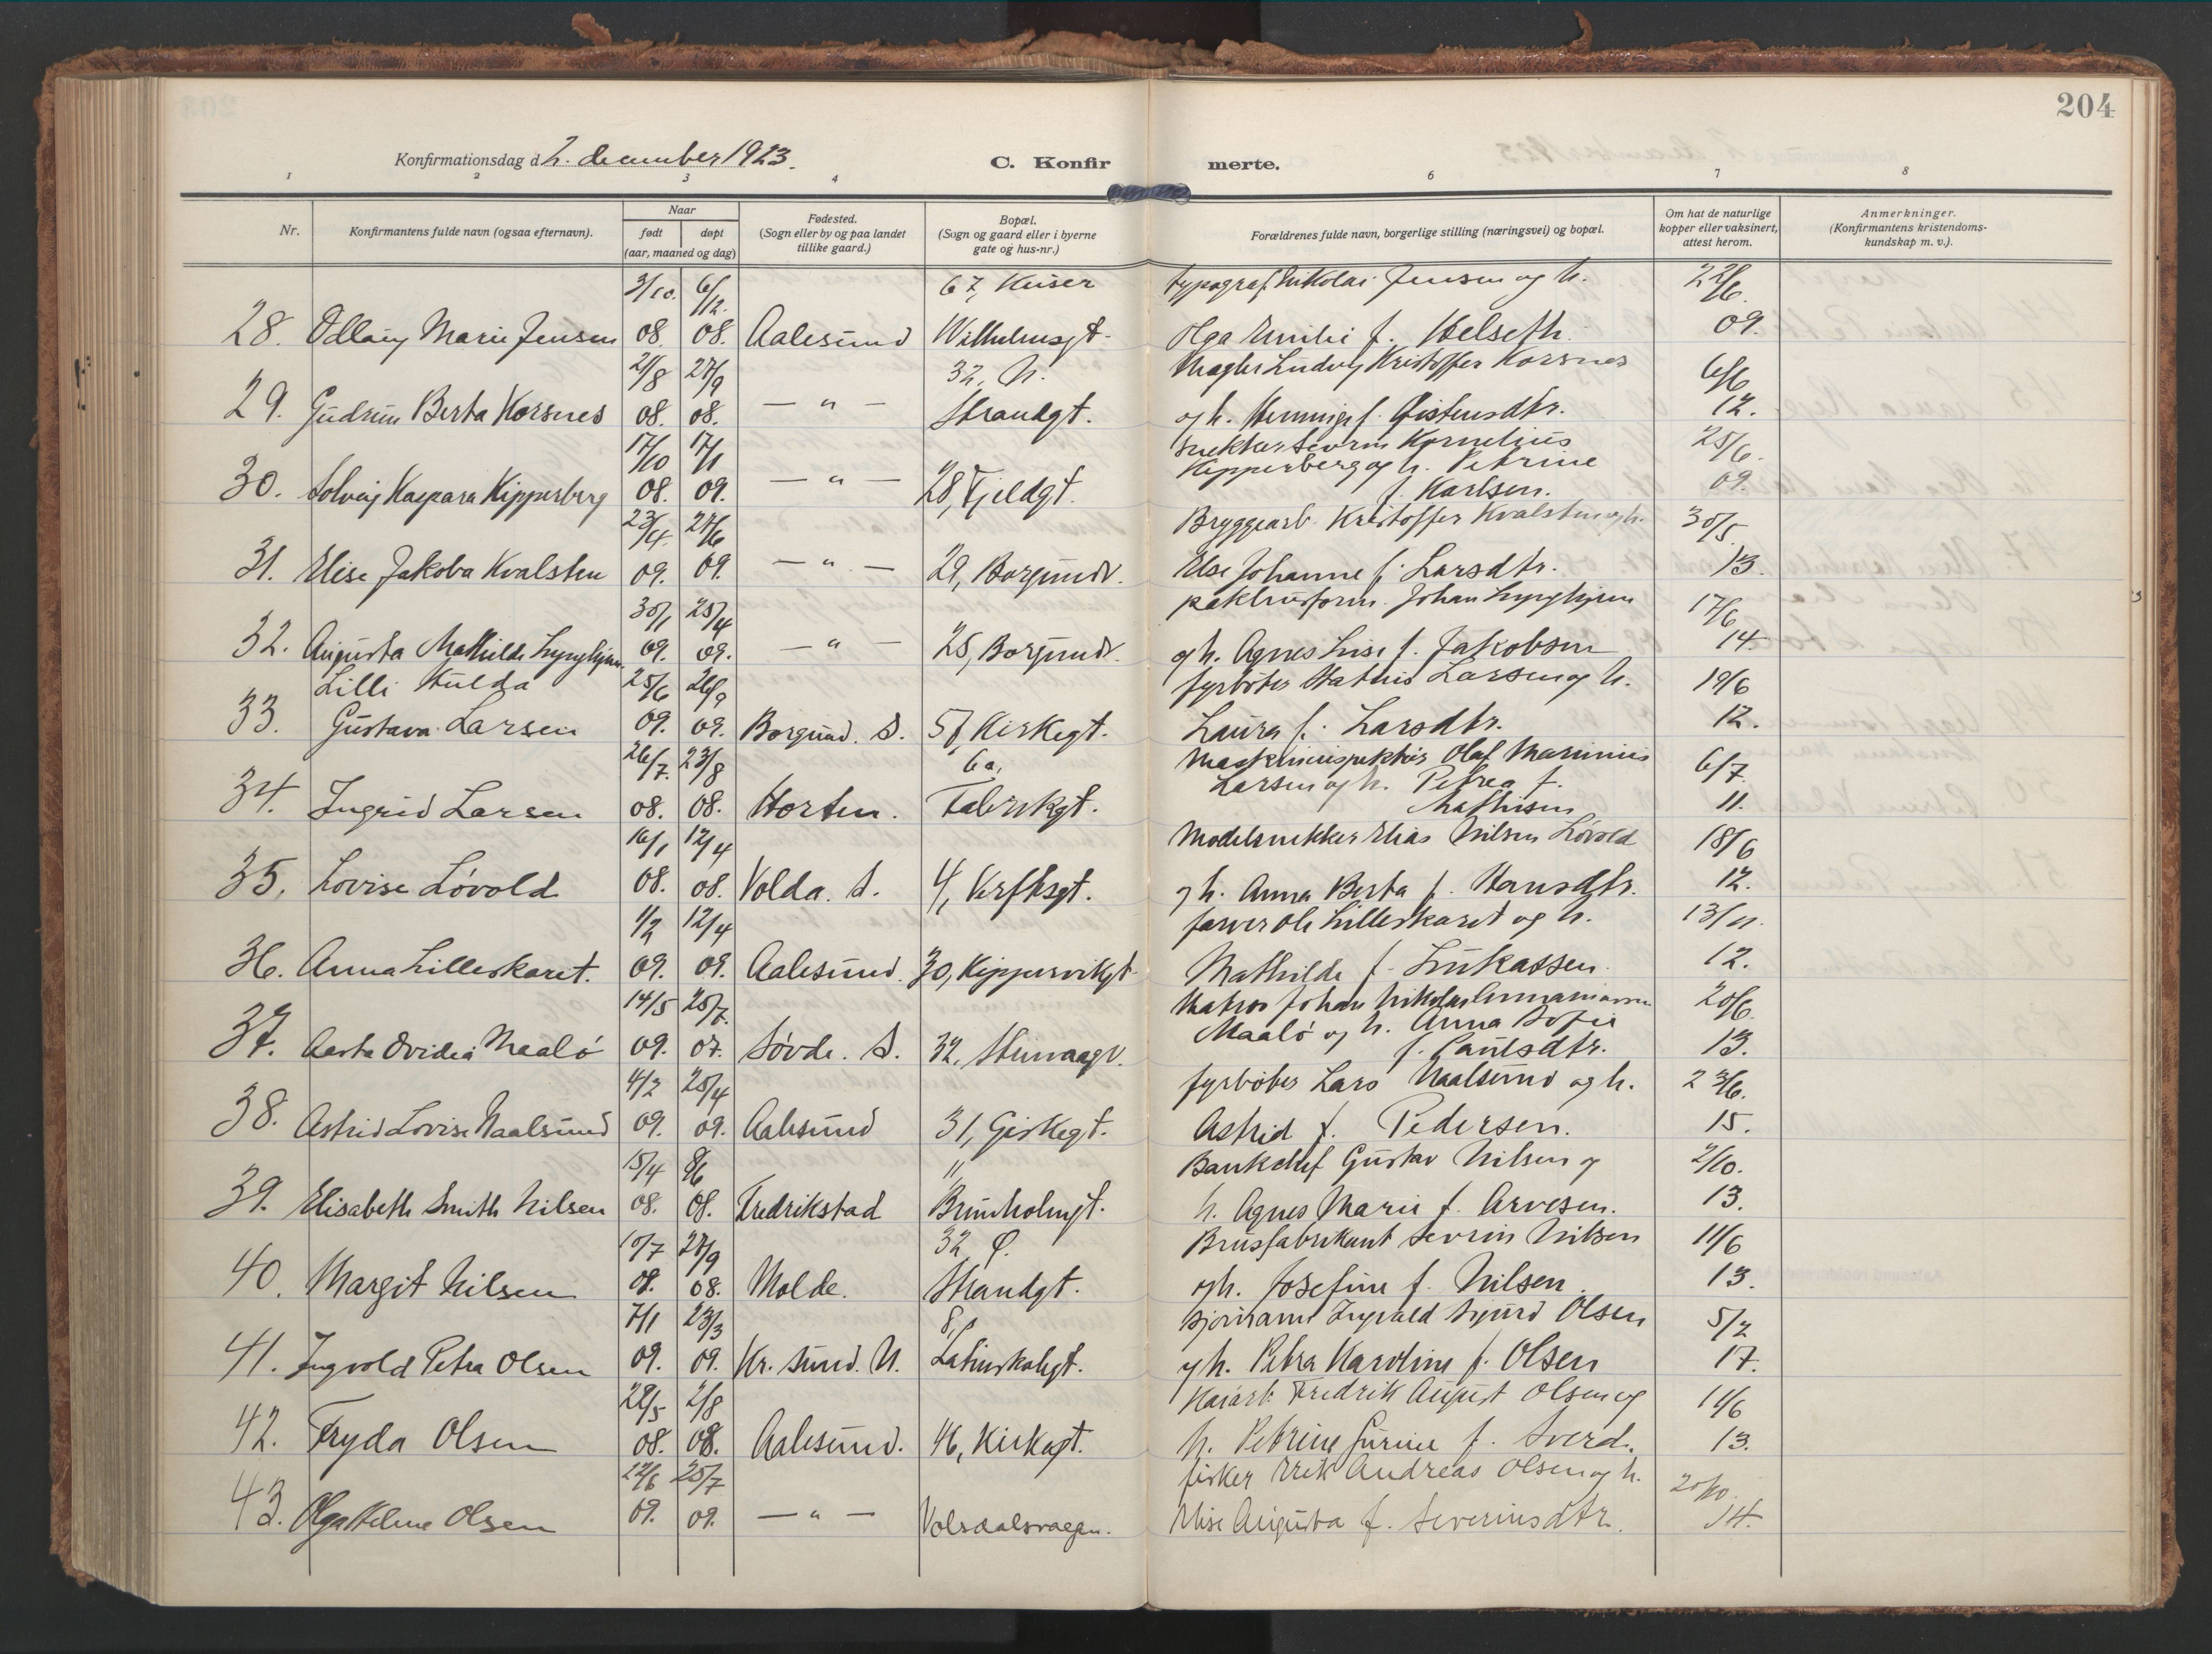 204
Konfirmationsdag d. 2. december 1923.
C. Konfirmerte.
1 2 3 4 6 7 8
Nr. Konfirmantens fulde navn (ogsaa efternavn). Naar født døpt (aar, maaned og dag) Fødested. (Sogn eller by og paa landet tillike gaard.) Bopæl. (Sogn og gaard eller i byerne gate og hus-nr.) Forældrenes fulde navn, borgerlige stilling (næringsvei) og bopæl. Om hat de naturlige kopper eller vaksinert, attest herom. Anmerkninger. (Konfirmantens kristendoms-kundskap m. v.).
3/10. 6/12. 67, Keiser typograf Nikolai Jensen og h. 22/6.
28. Odlaug Marie Jensen 08. 08. Aalesund Wilhelmsgt. Olga Emilie f. Helseth. 09.
21/8 27/9 32, N. Mægler Ludvig Kristoffer Korsnes 6/6
29. Gudrun Berta Korsnes 08. 08. — " — Strandgt. og h. Henninge f. Øistensdtr. 12.
17/10 17/1 snekker Severin Kornelius 25/6.
30. Solveig Kaspara Kipperberg 08. 09. — " — 28, Fjeldgt. Kipperberg og h. Petrine f. Karlsen. 09.
23/4. 27/6 Bryggearb. Kristoffer Kvalsten og h. 30/5.
31. Elise Jakoba Kvalsten 09. 09. — " — 29, Borgundv. Else Johanne f. Larsdtr. 13.
30/1 25/4 pakhusform. Johan Lynghjem 17/6
32. Augusta Mathilde Lynghjem. 09. 09. — " — 25, Borgundv. og h. Agnes Lise f. Jakobsen 14.
Lilli Hulda 25/6 26/9 fyrbøter Larsen og h. 19/6
33. Gustava Larsen 09. 09. Borgund. S. 57, Kirkegt. Laura f. Larsdtr. 12.
26/7. 23/8 6a, Maskininspektør Olaf Marinius 6/7
34. Ingrid Larsen 08. 08. Horten. Fabrikgt. Larsen og h. Petrea f. Mathisen 11.
16/1 12/4 Modelsnekker Elias Nilsen Løvold 18/6
35. Lovise Løvold 08. 08. Volda. S. 4, Verftsgt. og h. Anna Berta f. Hansdtr. 12.
1/2 12/4 farver Ole Lilleskaret og h. 13/11.
36. Anna Lilleskaret. 09. 09. Aalesund. 30, Kippervikgt. Mathilde f. Lukassen. 12.
14/5 25/7. Matros Johan Nikolai 20/6.
37. Aasta Ovidia Maalø 09. 07. Søvde. S. 32, Steinvaagv. Maalø og h. Anna Sofie f. Paulsdtr. 13.
4/2 25/4 fyrbøter Lars Naalsund og h. 23/6.
38. Astrid Lovise Naalsund 09. 09. Aalesund 31, Giskegt. Astrid f. Pedersen. 15.
15/4 8/6 11, Bankchef Gustav Nilsen og 2/10.
39. Elisabeth Smith Nilsen 08. 08. Fredrikstad Brunholmgt. h. Agnes Marie f. Arvesen. 13.
10/7 27/9 32, Ø. Brusfabrikant Severin Nilsen 11/6
40. Margit Nilsen 08. 08. Molde. Strandgt. og h. Josefine f. Nilsen. 13.
7/1 23/3 8, Sjømand Ingvald Sigurd Olsen 5/2
41. Ingvold Petra Olsen 09. 09. Kr. sund. N. Latinskolegt. og h. Petra Karoline f. Olsen 17.
28/5 2/8 Kaiarb. Fredrik August Olsen og 11/6
42. Fryda Olsen 08. 08. Aalesund. 46, Kirkegt. h. Petrine Gurine f. Sverd. 13.
22/6 25/7 fisker Erik Andreas Olsen og h. 20/10.
43. Olga Helene Olsen 09. 09. — " — Volsdalsvaagen. Elise Augusta f. Severinsdtr. 14.